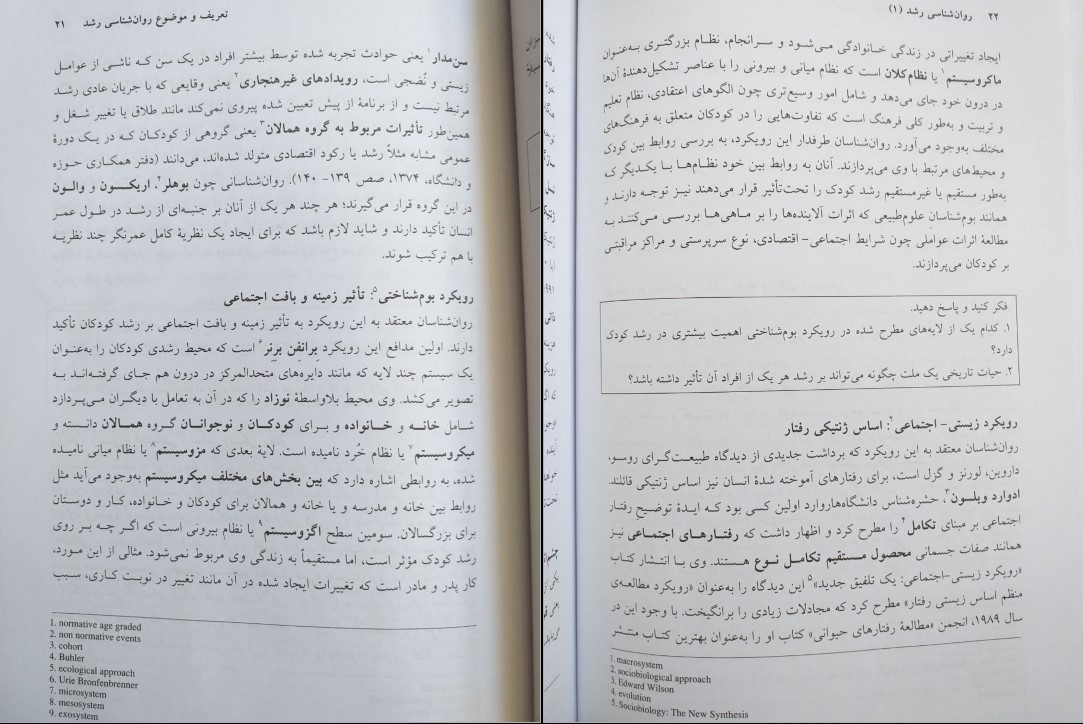 تعریف و موضوع روان‌شناسی رشد ۲۱
سن‌مدار۱ یعنی حوادث تجربه شده توسط بیشتر افراد در یک سن که ناشی از عوامل
زیستی و نُضجی است، رویدادهای غیرهنجاری۲ یعنی وقایعی که با جریان عادی رشد
مرتبط نیست و از برنامهٔ از پیش تعیین شده پیروی نمی‌کند مانند طلاق یا تغییر شغل و
همین‌طور تأثیرات مربوط به گروه همالان۳ یعنی گروهی از کودکان که در یک دورهٔ
عمومی مشابه مثلاً رشد یا رکود اقتصادی متولد شده‌اند، می‌دانند (دفتر همکاری حوزه
و دانشگاه، ۱۳۷۴، صص ۱۳۹- ۱۴۰). روان‌شناسانی چون بوهلر۴، اریکسون و والون
در این گروه قرار می‌گیرند؛ هر چند هر یک از آنان بر جنبه‌ای از رشد در طول عمر
انسان تأکید دارند و شاید لازم باشد که برای ایجاد یک نظریهٔ کامل عمرنگر چند نظریه
با هم ترکیب شوند.
رویکرد بوم‌شناختی۵: تأثیر زمینه و بافت اجتماعی
روان‌شناسان معتقد به این رویکرد به تأثیر زمینه و بافت اجتماعی بر رشد کودکان تأکید
دارند. اولین مدافع این رویکرد برانفِن برِنر۶ است که محیط رشدی کودکان را به‌عنوان
یک سیستم چند لایه که مانند دایره‌های متحدالمرکز در درون هم جای گرفته‌اند به
تصویر می‌کشد. وی محیط بلاواسطهٔ نوزاد را که در آن به تعامل با دیگران می‌پردازد
شامل خانه و خانواده و برای کودکان و نوجوانان گروه همالان دانسته و
میکروسیستم۷ یا نظام خُرد نامیده است. لایهٔ بعدی که مزوسیستم۸ یا نظام میانی نامیده
شده، به روابطی اشاره دارد که بین بخش‌های مختلف میکروسیستم به‌وجود می‌آید مثل
روابط بین خانه و مدرسه و یا خانه و همالان برای کودکان و خانواده، کار و دوستان
برای بزرگسالان. سومین سطح اگزوسیستم۹ یا نظام بیرونی است که اگر چه بر روی
رشد کودک مؤثر است، اما مستقیماً به زندگی وی مربوط نمی‌شود. مثالی از این مورد،
کار پدر و مادر است که تغییرات ایجاد شده در آن مانند تغییر در نوبت کاری، سبب
1. normative age graded
2. non normative events
3. cohort
4. Buhler
5. ecological approach
6. Urie Bronfenbrenner
7. microsystem
8. mesosystem
9. exosystem
۲۲ روان‌شناسی رشد (۱)
ایجاد تغییراتی در زندگی خانوادگی می‌شود و سرانجام، نظام بزرگتری به‌عنوان
ماکروسیستم۱ یا نظام‌کلان است که نظام میانی و بیرونی را با عناصر تشکیل‌دهندهٔ آن‌ها
در درون خود جای می‌دهد و شامل امور وسیع‌تری چون الگوهای اعتقادی، نظام تعلیم
و تربیت و به‌طور کلی فرهنگ است که تفاوت‌هایی را در کودکان متعلق به فرهنگ‌های
مختلف به‌وجود می‌آورد. روان‌شناسان طرفدار این رویکرد، به بررسی روابط بین کودک
و محیط‌های مرتبط با وی می‌پردازند. آنان به روابط بین خود نظام‌ها با یکدیگر که
به‌طور مستقیم یا غیرمستقیم رشد کودک را تحت‌تأثیر قرار می‌دهند نیز توجه دارند و
همانند بوم‌شناسانِ علوم‌طبیعی که اثرات آلاینده‌ها را بر ماهی‌ها بررسی می‌کنند به
مطالعهٔ اثرات عواملی چون شرایط اجتماعی- اقتصادی، نوع سرپرستی و مراکز مراقبتی
بر کودکان می‌پردازند.
فکر کنید و پاسخ دهید.
۱. کدام یک از لایه‌های مطرح شده در رویکرد بوم‌شناختی اهمیت بیشتری در رشد کودک
دارد؟
۲. حیات تاریخی یک ملت چگونه می‌تواند بر رشد هر یک از افراد آن تأثیر داشته باشد؟
رویکرد زیستی- اجتماعی۲: اساس ژنتیکی رفتار
روان‌شناسان معتقد به این رویکرد که برداشت جدیدی از دیدگاه طبیعت‌گرای روسو،
داروین، لورنز و گزل است، برای رفتارهای آموخته شدهٔ انسان نیز اساس ژنتیکی قائلند.
ادوارد ویلسون۳، حشره‌شناس دانشگاه‌هاروارد اولین کسی بود که ایدهٔ توضیح رفتار
اجتماعی بر مبنای تکامل۴ را مطرح کرد و اظهار داشت که رفتارهای اجتماعی نیز
همانند صفات جسمانی محصول مستقیم تکامل نوع هستند. وی با انتشار کتاب
«رویکرد زیستی-اجتماعی: یک تلفیق جدید»۵ این دیدگاه را به‌عنوان «رویکرد مطالعه‌ی
منظم اساس زیستی رفتار» مطرح کرد که مجادلات زیادی را برانگیخت. با وجود این در
سال ۱۹۸۹، انجمن «مطالعهٔ رفتارهای حیوانی» کتاب او را به‌عنوان بهترین کتاب منتشر
1. macrosystem
2. sociobiological approach
3. Edward Wilson
4. evolution
5. Sociobiology: The New Synthesis